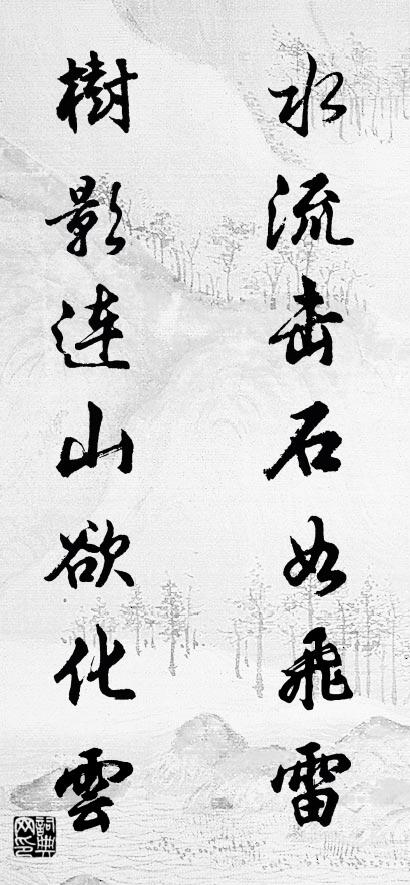 水流击石如飛雷
樹影连山欲化雲
詞典网印